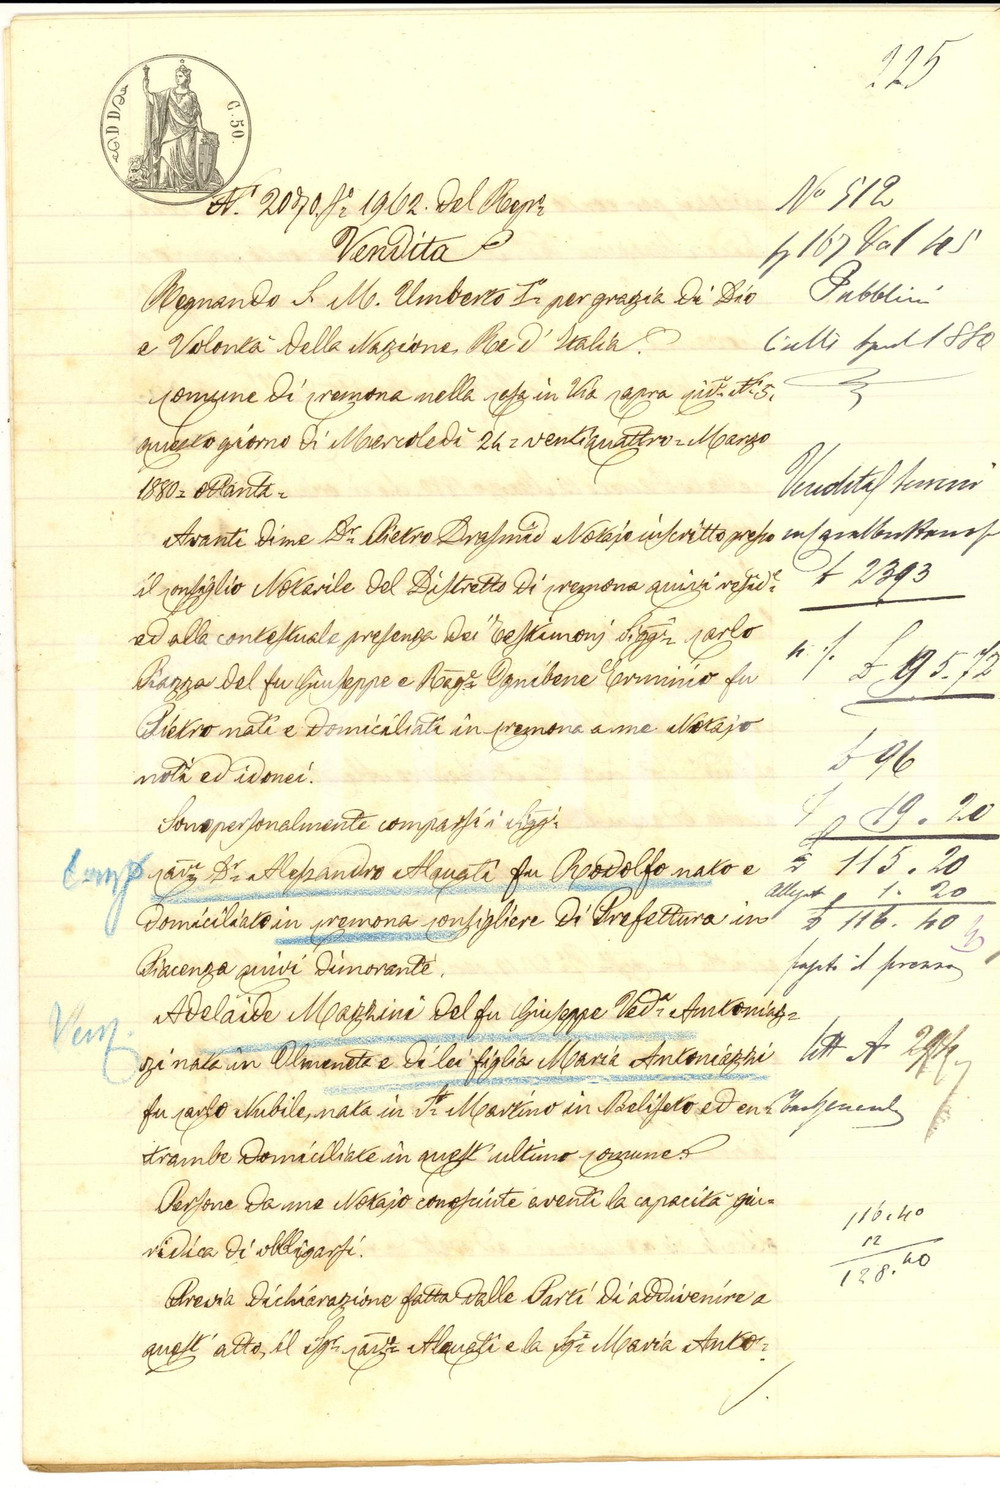 225
C. 50.
N.º 2070. f.º 1962. del Rep.º
Vendita
Regnando S. M. Umberto I.º per grazia di Dio
e Volontà della Nazione Re d'Italia.
Comune di Cremona nella casa in Via Capra
questo giorno di Mercoledì 24 = ventiquattro = Marzo
1880 = ottanta =
Avanti di me D.r Pietro Notajo inscritto presso
il Consiglio Notarile del Distretto di Cremona quivi resid.e
ed alla contestuale presenza dei Testimonj Sigg.ri Carlo
Piazza del fu Giuseppe e Rag.re Ognibene Erminio fu
Pietro nati e domiciliati in Cremona a me Notajo
noti ed idonei.
Sono personalmente comparsi i Sigg.i
Comp
Cav.re D.r Alessandro Alquati fu Rodolfo nato e
domiciliato in Cremona Consigliere di Prefettura in
Piacenza quivi dimorante.
Vend.
Adelaide Mazzini del fu Giuseppe Ved.a Antoniaz=
zi nata in Olmeneta e di lei figlia Maria Antoniazzi
fu Carlo Nubile, nata in S. Martino in Beliseto ed en=
trambe domiciliate in quest'ultimo Comune.
Persone da me Notajo conosciute aventi la capacità giu=
ridica di obbligarsi.
Previa dichiarazione fatta dalle Parti di addivenire a
quest'atto, il Sig.r Cav.re Alquati e la Sig.a Maria Anto=
N.º 512
167 Vol 45
Pubblici
1880
Vendita
2393
95.72
96
19.20
115.20
1.20
116.40
116.40
12
128.40